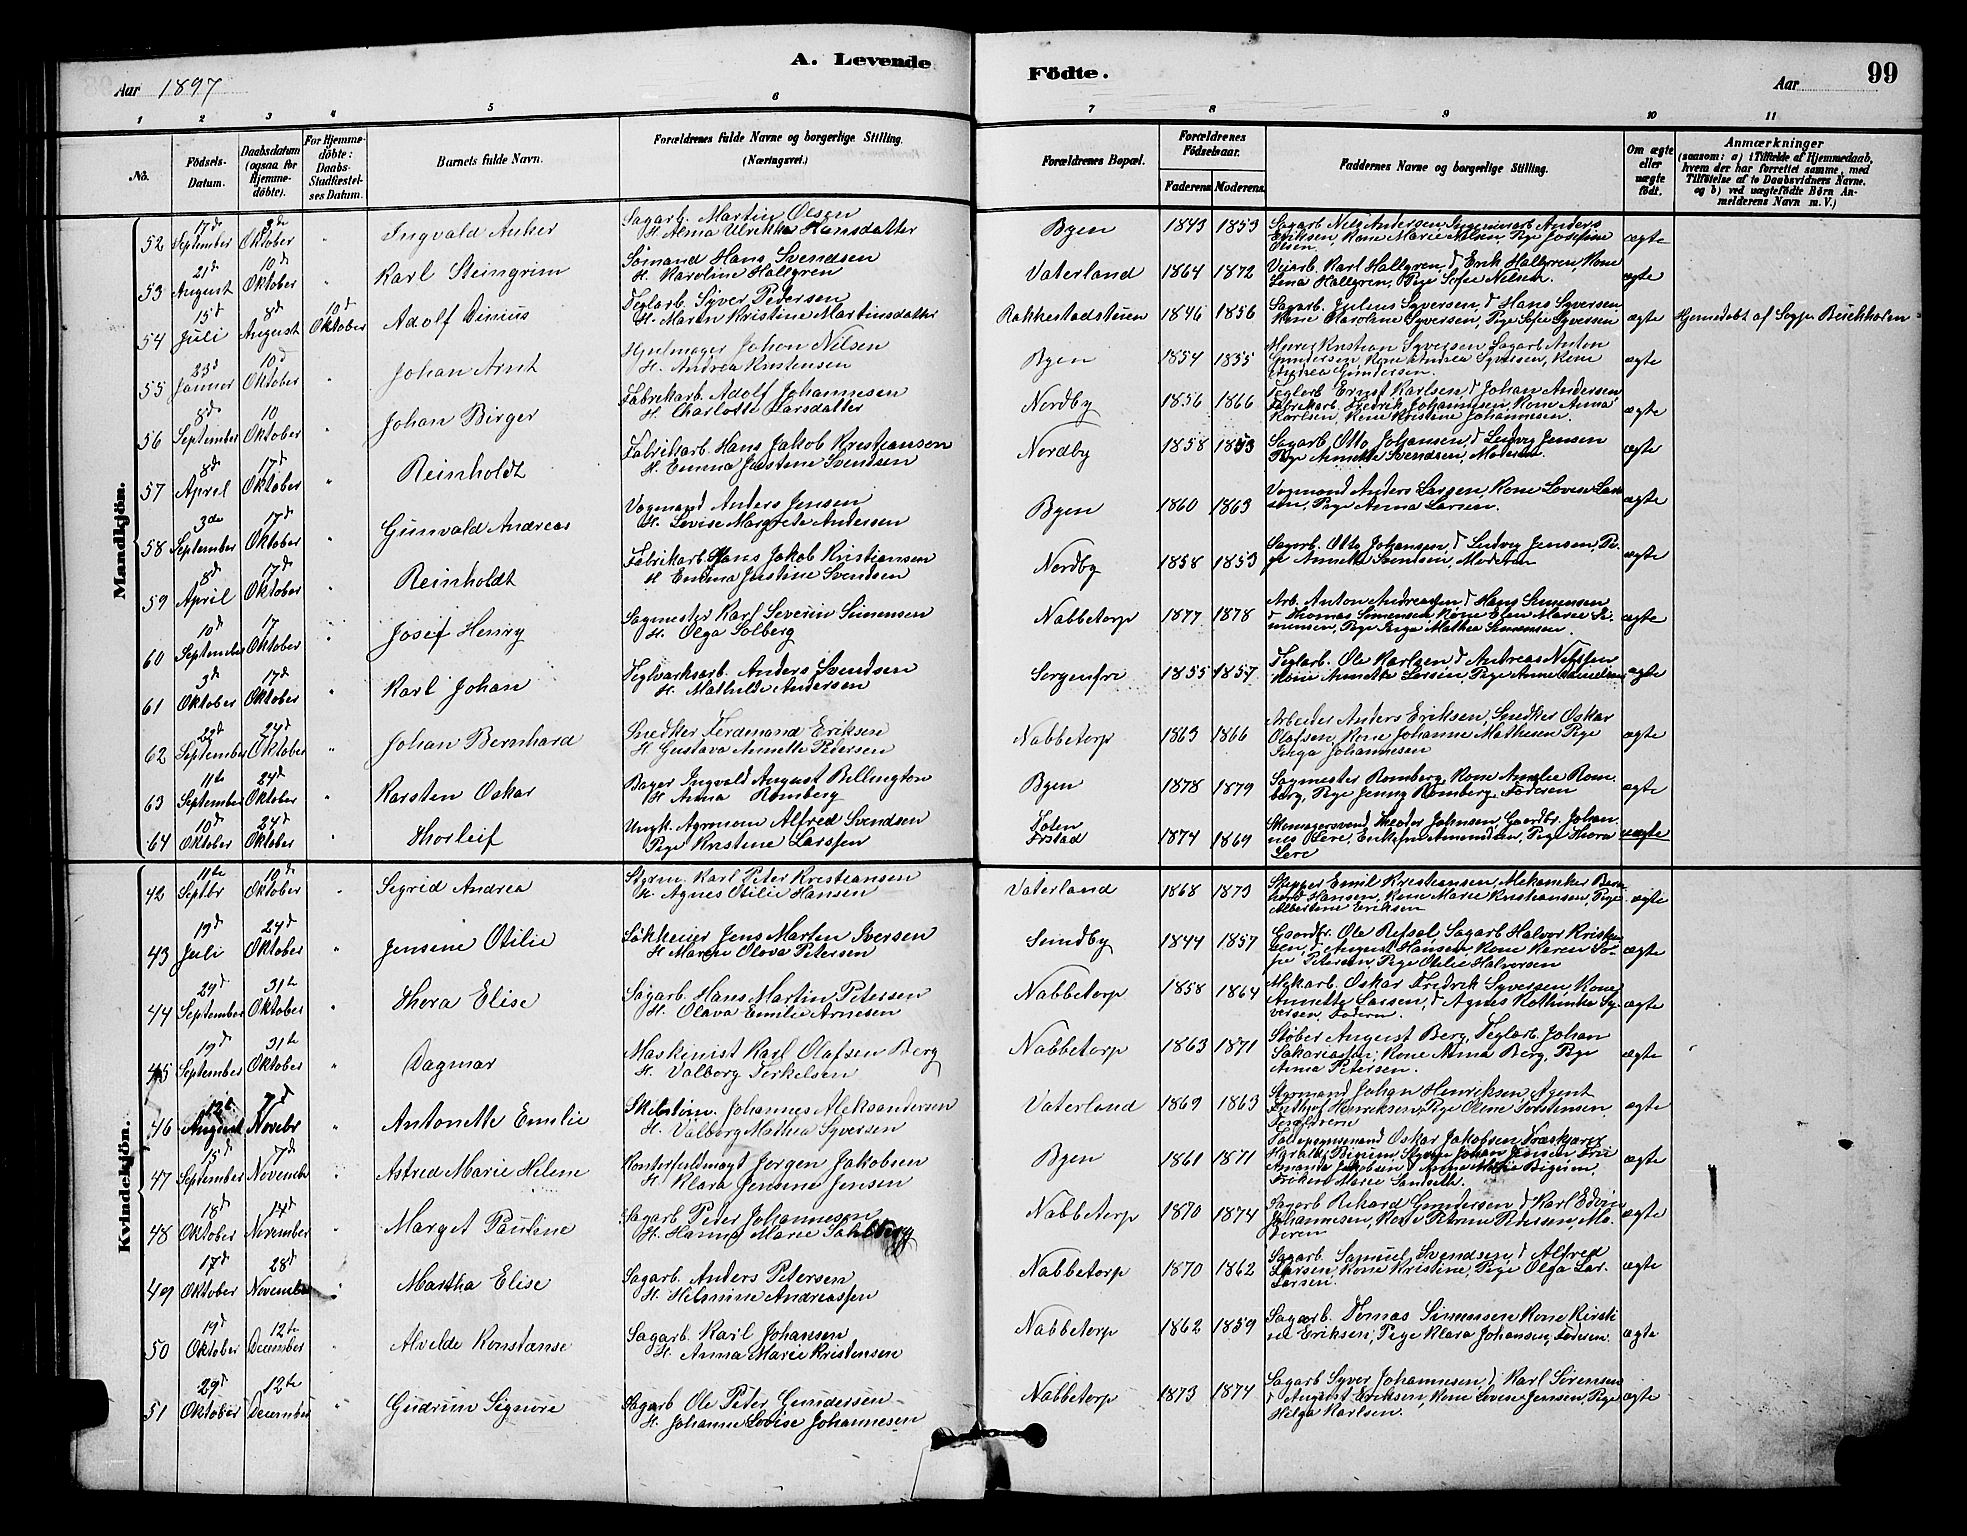 A. Levende Födte.
99
Aar 1897
Aar
1 2 3 4 5 6 7 8 9 10 11
No.
Födsels-Datum.
Daabsdatum (ogsaa for Hjemme-döbte).
For Hjemme-döbte: Daabs-Stadfæstelses Datum.
Barnets fulde Navn.
Forældrenes fulde Navne og borgerlige Stilling. (Næringsvei.)
Forældrenes Bopæl.
Forældrenes Födselsaar.
Faderens Moderens
Faddernes Navne og borgerlige Stilling.
Om ægte eller uægte födt.
Anmærkninger
(saasom: a) i Tilfælde af Hjemmedaab, hvem der har forrettet samme, med Tilföielse af to Daabsvidners Navne. og b) ved uægtefödte Börn Anmelderens Navn m. V.)
Mandkjön.
52 17d September 3de Oktober " Ingvald Anker Sagarb. Martin Olsen H. Alma Ulrikka Hansdatter Byen 1843 1853 Sagarb Nils Andersen, Anders Eriksen, Kone Marie Nilsen, Pige Josefine Olsen ægte
53 21d August 10d Oktober " Karl Steingrim Sømand Hans Svendsen H. Karoline Hallgren Vaterland 1864 1872 Veiarb. Karl Hallgren, d Erik Hallgren, Kone Lena Hallgren, Pige Sofie Nilsen. ægte
54 15d Juli 8d August 10d Oktober Adolf Dinius Teglarb. Syver Pedersen H. Maren Kristine Martinsdatter Rakkestadstuen 1846 1856 Sagarb. Julius Syversen, d Hans Syversen Kone Karoline Syversen, Pige Sofie Syversen ægte Hjemmedøbt af Sogpr. Buchholm
55 23d Januar 10d Oktober " Johan Arnt Hjulmager Johan Nilsen H. Andrea Kristensen Byen 1854 1855 Kristian Syversen, Sagarb Anton Gundersen, Kone Andrea Syversen, Kone Andrea Gundersen. ægte
56 8d September 10 Oktober " Johan Birger Fabrikarb. Adolf Johannesen H. Charlotte Larsdatter Nordby 1856 1866 Teglarb Ernst Karlsen, d Johan Andersen Fabrikarb. Fredrik Johannesen, Kone Anna Karlsen, Kone Kristine Johannesen. ægte
57 8d April 17d Oktober " Reinholdt Fabrikarb. Hans Jakob Kristiansen H. Emma Justine Svendsen Nordby 1858 1853 Sagarb. Otto Johansen, d Ludvig Jensen Pige Annette Svendsen, Moderen. ægte
58 3de September 17d Oktober " Gunvald Andreas Vogmand Anders Jensen H. Lovise Margrete Andersen Byen 1860 1863 Vogmand Anders Larsen, Kone Lovise Larsen, Pige Anna Larsen. ægte
59 8d April 17d Oktober " Reinholdt Fabrikarb. Hans Jakob Kristiansen H. Emma Justine Svendsen Nordby 1858 1853 Sagarb. Otto Johansen, d Ludvig Jensen, Pige Annette Svendsen, Moderen ægte
60 10d September 17 Oktober " Josef Henry Sagmester Karl Severin Simensen H. Olga Solberg Nabbetorp 1877 1878 Arb. Anton Andreassen, d Hans Simensen d Thomas Simensen, Kone Elen Marie Simensen, Pige Inga Mathea Simensen. ægte
61 3d Oktober 17d Oktober " Karl Johan Teglverksarb. Anders Svendsen H. Mathilde Andersen Sorgenfri 1855 1857 Teglarb. Ole Karlsen, d Andreas Nilsen Kone Annette Larsen, Pige Anne Danielsen ægte
62 22d September 24d Oktober " Johan Bernhard Snedker Ferdinand Eriksen H. Gustava Annette Pedersen Nabbetorp 1863 1866 Arbeider Anders Eriksen, Snedker Oskar Olafsen, Kone Johanne Mathisen Pige Inga Johannesen ægte
63 11te September 24d Oktober " Karsten Oskar Bager Ingvald August Billington H. Anna Romberg Byen 1878 1879 Sagmester Romberg, Kone Amalie Romberg, Pige Jenny Romberg, Faderen ægte
64 10d Oktober 24d Oktober " Thorleif Ungk. Agronom Alfred Svendsen Pige Kristine Larssen Toten 1874 1869 Skomagersvend Theodor Johnsen, Gaardbr. Johannes Lere, Enkefru Amundsen, Pige Thora Lere uægte
Kvindekjön.
42 11te Septbr 10d Oktober " Sigrid Andrea Styrm. Karl Peter Kristiansen H. Agnes Otilie Hansen Vaterland 1868 1873 Skipper Emil Kristiansen, Mekaniker Bernhard Hansen, Kone Marie Kristiansen, Pige Albertine Eriksen ægte
43 19d Juli 24d Oktober " Jensine Otilie Jens Martin Iversen H. Maren Olava Petersen Sundby 1844 1857 Gaardbr. Ole Refsal, Sagarb Halvor Kristiansen, d August Hansen, Kone Karen Sofie Petersen, Pige Otilie Halversen ægte
44 29d September 31te Oktober " Thora Elise Sagarb. Hans Martin Petersen H. Olava Emilie Arnesen Nabbetorp 1858 1864 Mekarb. Oskar Fredrik Syversen, Kone Annette Larsen, d Agnes Kathinka Syversen, Faderen. ægte
45 19d September 31te Oktober " Dagmar Maskinist Karl Olafsen Berg H. Valborg Terkelsen Nabbetorp 1863 1871 Støber August Berg, Teglarb. Johan Sakariassen, Kone Anna Berg, Pige Anna Petersen. ægte
46 12te August 7d Novebr " Antonette Emilie Johannes Aleksandersen H. Valborg Mathea Syversen Vaterland 1869 1863 Styrmand Johan Henriksen, Agent Henriksen, Pige Oline Torstensen, Forældrene ægte
47 15d September 7d November " Astrid Marie Helene Kontorfuldmægt Jørgen Jakobsen H. Klara Jensine Jensen Byen 1861 1871 Oskar Jakobsen, Harald Johan Jensen Frue Amanda Jakobsen, d Anna Marie Frøken Marie ægte
48 18d Oktober 14d November " Marget Pauline Sagarb. Peter Johannesen H. Hanna Marie Nabbetorp 1870 1874 Sagarb Rikard Gundersen d Karl Edvin Johannesen, Kone Petrine Pedersen, Moderen ægte
49 17d Oktober 28d November " Martha Elise Sagarb. Anders Petersen H. Helmine Andreassen Nabbetorp 1870 1862 Sagarb. Samuel Svendsen, d Alfred Larsen, Kone Kristine, Pige Olga Larsen ægte
50 19d Oktober 12te December " Alvilde Konstanse Sagarb. Karl Johansen H. Anna Marie Kristensen Nabbetorp 1862 1859 Sagarb. Tomas Simensen Kone Kirstine Eriksen, Pige Klara Johansen, Faderen. ægte
51 29d Oktober 12te December " Gudrun Signore Sagarb Ole Peter Gundersen H. Johanne Lovise Johannesen Nabbetorp 1873 1874 Sagarb Syver Johannesen, d Karl Sørensen d August Eriksen, Kone Lovise Jensen, Pige Helga Karlsen. ægte